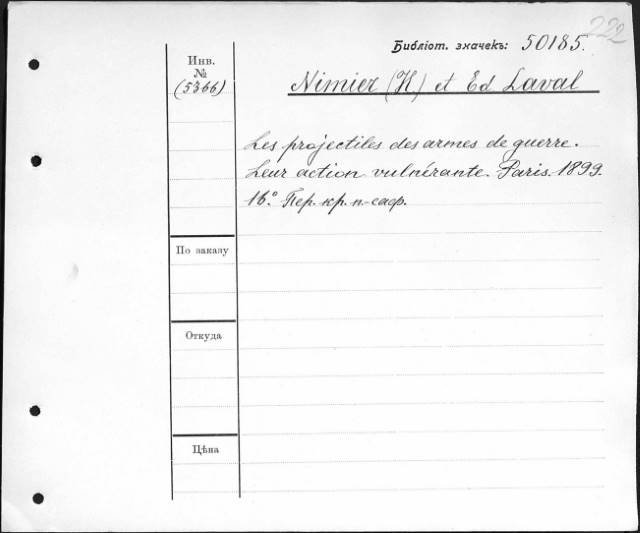 222
Библіот. значекъ: 50185.
Инв.
№
(5366)
Nimier (H) et Ed Laval
Les projectiles des armes de guerre.
Leur action vulnérante. Paris. 1899.
16° Пер. кр. п-саф.
По заказу
Откуда
Цѣна